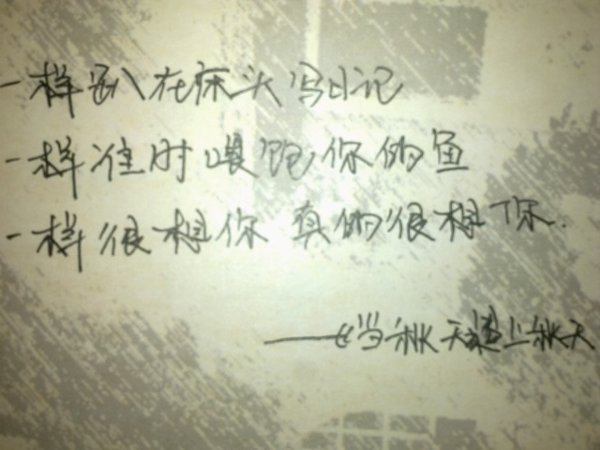 一样趴在床头写日记
一样准时喂饱你的鱼
一样很想你 真的很想你.
——《当秋天遇上秋天